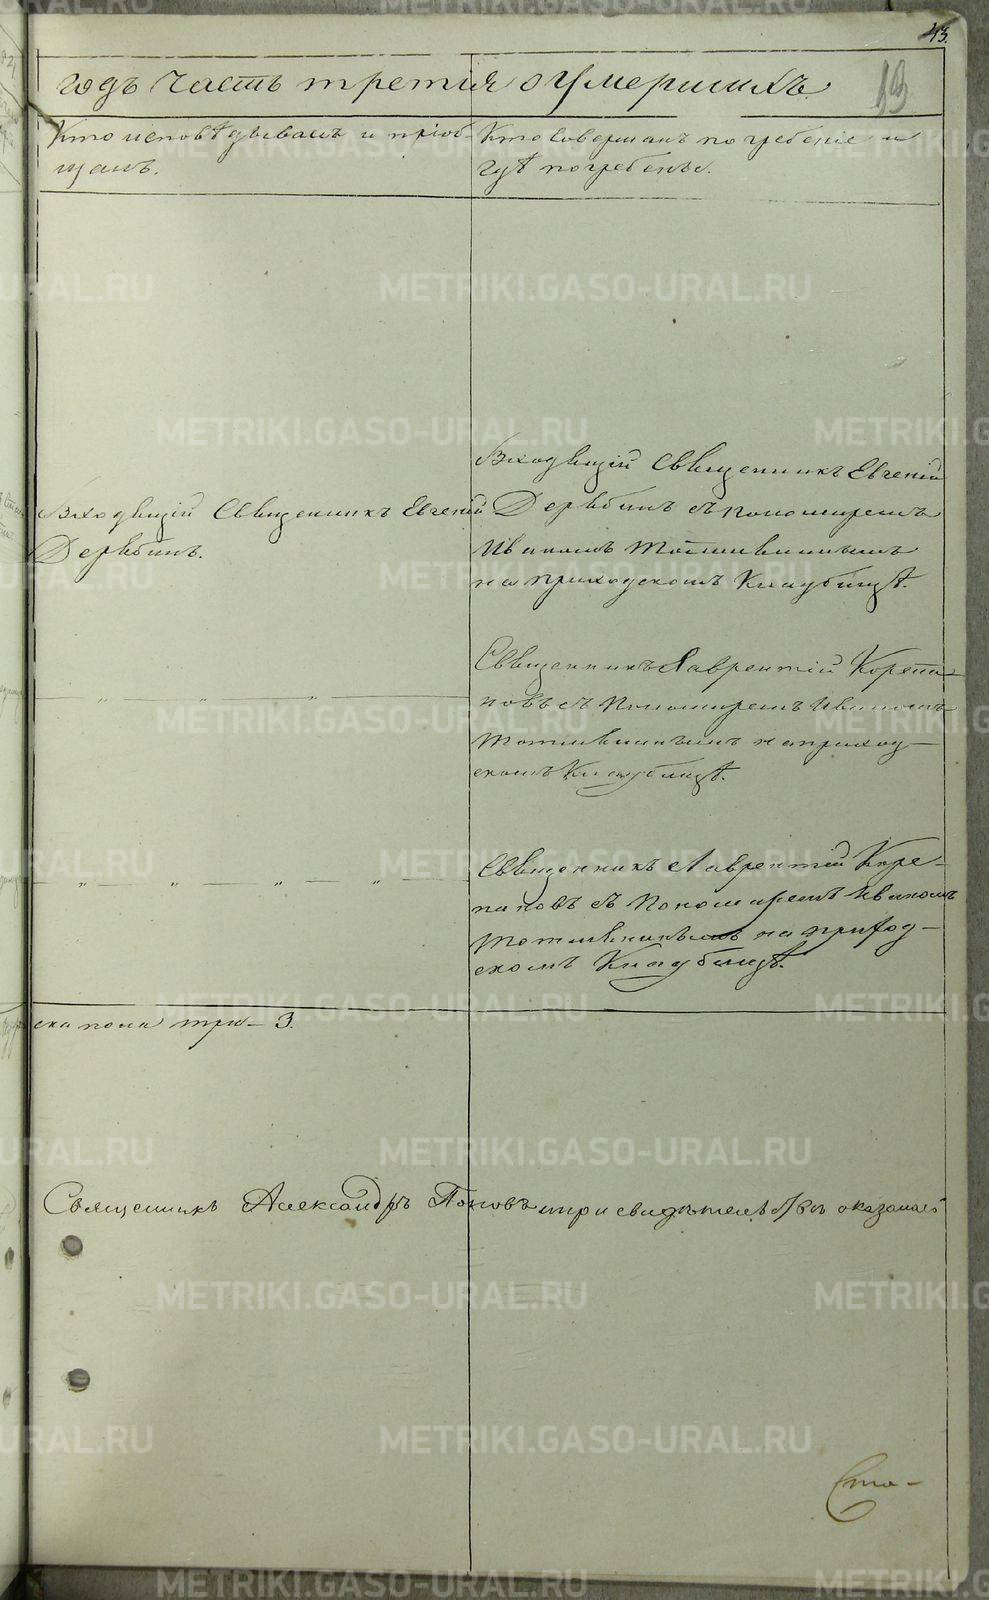 43.
годъ часть третія о умершихъ.
13
Кто исповѣдывалъ и пріоб-
щалъ.
Кто совершалъ погребеніе и
гдѣ погребены.
Входящій Священникъ Евгеній
Дерябинъ.
Входящій Священникъ Евгеній
Дерябинъ съ Пономаремъ
Иваномъ
на приходскомъ Кладбищѣ.
Священникъ Лаврентій Корепа-
новъ съ Пономаремъ Иваномъ
на приход-
скомъ Кладбищѣ.
Священникъ Лаврентій Коре-
пановъ съ Пономаремъ Иваномъ
на приход-
скомъ Кладбищѣ.
ска пола три - 3.
Священникъ Александръ Поповъ при свидѣтельствѣ оказалось
METRIKI.GASO-URAL.RU